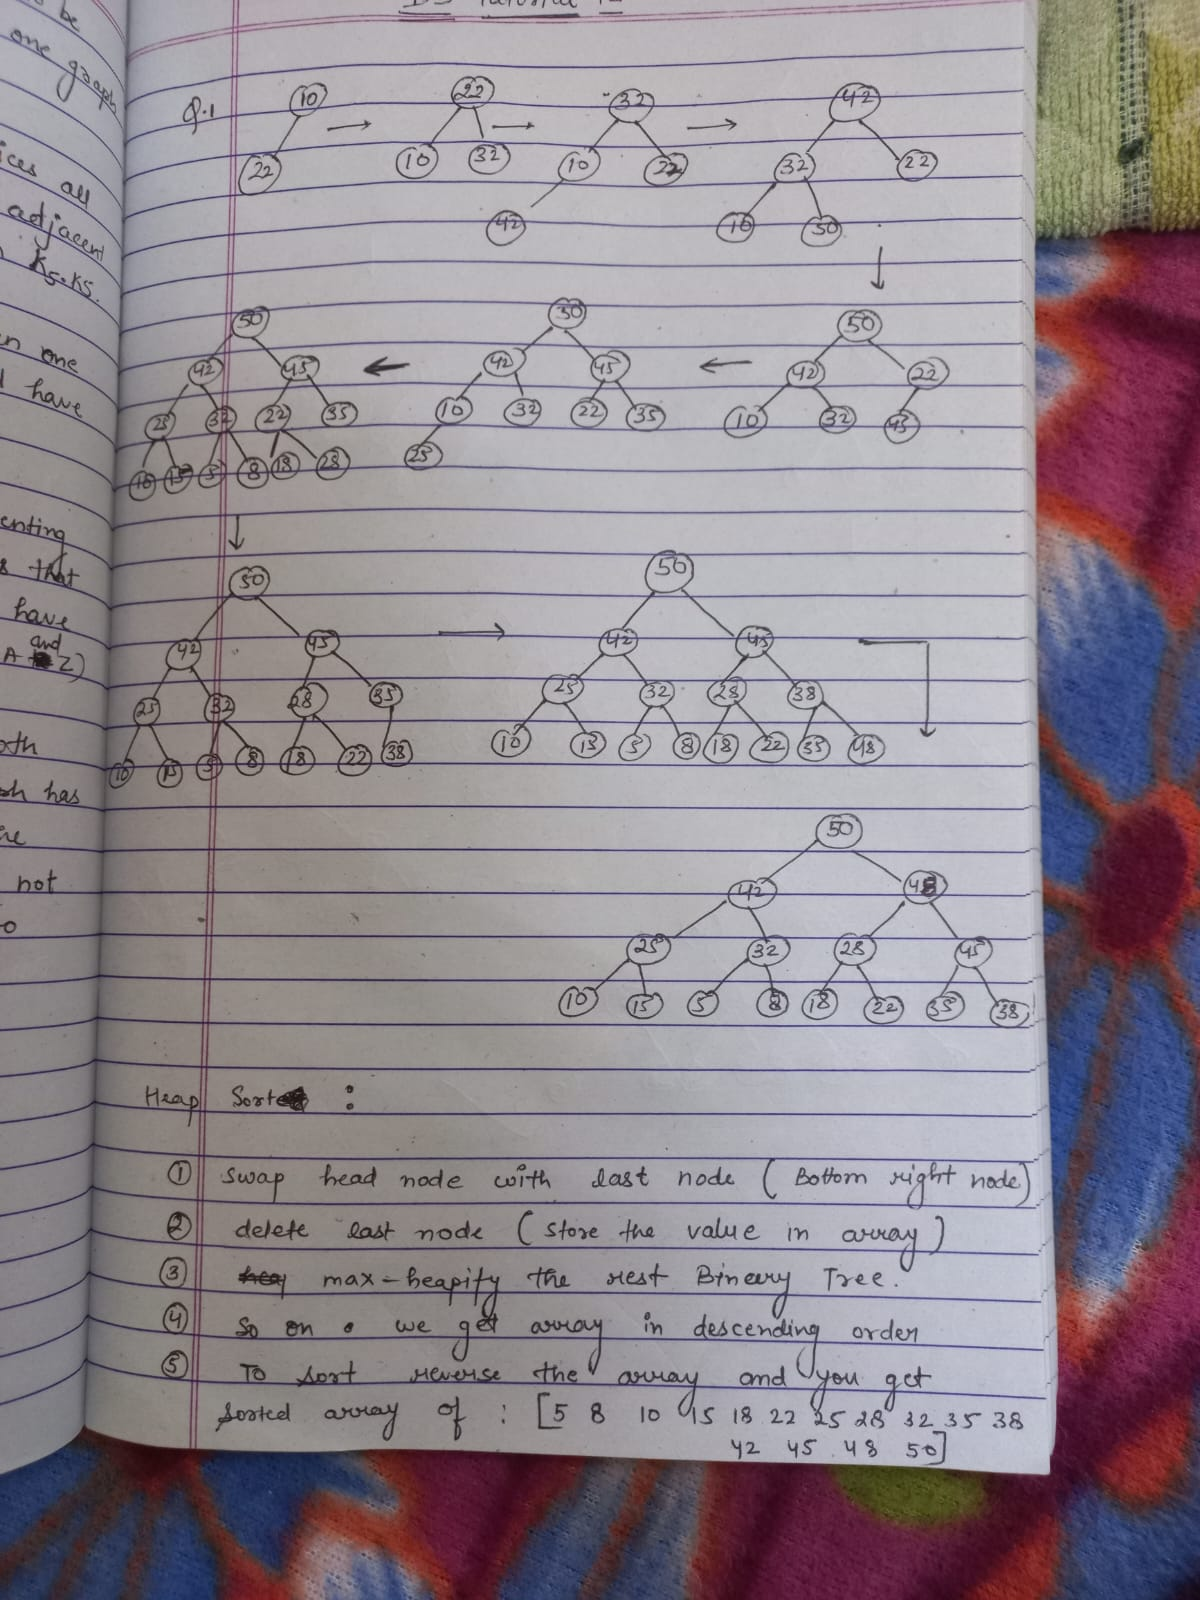 to be
one graph
ices all
adjacent
K5.K5.
en one
have
enting
s that
have
and
A Z)
oth
sh has
are
not
to
DS Tutorial
Q.1
10 22 32 42
22 10 32 10 22 32 22
42 10 50
50 50 50
42 45 42 45 42 22
25 32 22 35 10 32 22 35 10 32 45
10 15 5 8 18 28 25
50 50
42 45 42 45
25 32 28 35 25 32 28 38
10 15 5 8 18 22 38 10 15 5 8 18 22 35 48
50
42 48
25 32 28 45
10 15 5 8 18 22 35 38
Heap Sort :
① swap head node with last node ( Bottom right node)
② delete last node ( store the value in array )
③ max-heapify the rest Bineary Tree.
④ So on • we get array in descending order
⑤ To sort reverse the array and you get
sorted array of : [5 8 10 15 18 22 25 28 32 35 38
42 45 48 50]